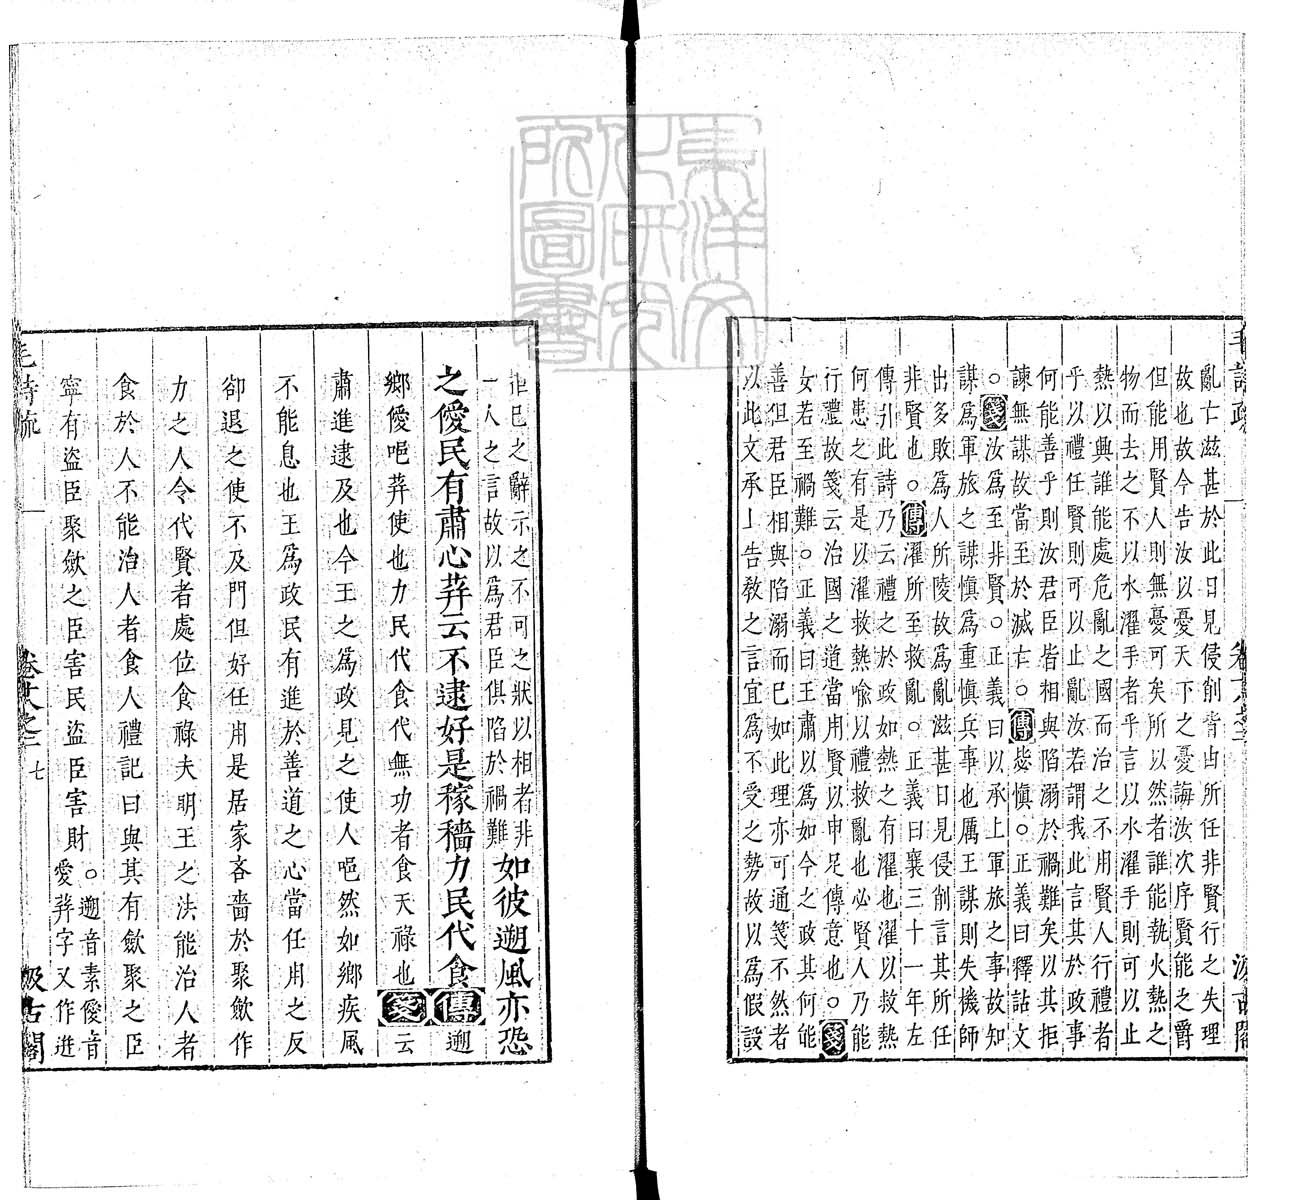 毛詩疏 卷十八之二 汲古閣
亂亡滋甚於此日見侵削皆由所任非賢行之失理
故也故今告汝以憂天下之憂誨汝次序賢能之爵
但能用賢人則無憂可矣所以然者誰能執火熱之
物而去之不以水濯手者乎言以水濯手則可以止
熱以興誰能處危亂之國而治之不用賢人行禮者
乎以禮任賢則可以止亂汝若謂我此言其於政事
何能善乎則汝君臣皆相與陷溺於禍難矣以其拒
諫無謀故當至於滅亡○傳毖慎○正義曰釋詁文
○箋汝爲至非賢○正義曰以承上軍旅之事故知
謀爲軍旅之謀慎爲重慎兵事也厲王謀則失機師
出多敗爲人所陵故爲亂滋甚日見侵削言其所任
非賢也○傳濯所至救亂○正義曰襄三十一年左
傳引此詩乃云禮之於政如熱之有濯也濯以救熱
何患之有是以濯救熱喻以禮救亂也必賢人乃能
行禮故箋云治國之道當用賢以申足傳意也○箋
女若至禍難○正義曰王肅以爲如今之政其何能
善但君臣相與陷溺而已如此理亦可通箋不然者
以此文承上告教之言宜爲不受之勢故以爲假設
拒已之辭示之不可之狀以相者非
一人之言故以爲君臣俱陷於禍難
如彼遡風亦孔
之僾民有肅心荓云不逮好是稼穡力民代食傳遡
鄉僾唈荓使也力民代食代無功者食天祿也箋云
肅進逮及也今王之爲政見之使人唈然如鄉疾風
不能息也王爲政民有進於善道之心當任用之反
卻退之使不及門但好任用是居家吝嗇於聚斂作
力之人令代賢者處位食祿夫明王之法能治人者
食於人不能治人者食人禮記曰與其有斂聚之臣
寧有盜臣聚斂之臣害民盜臣害財
○遡音素僾音
愛荓字又作迸
毛詩疏 卷十八之二 七 汲古閣
東洋文化研究所圖書